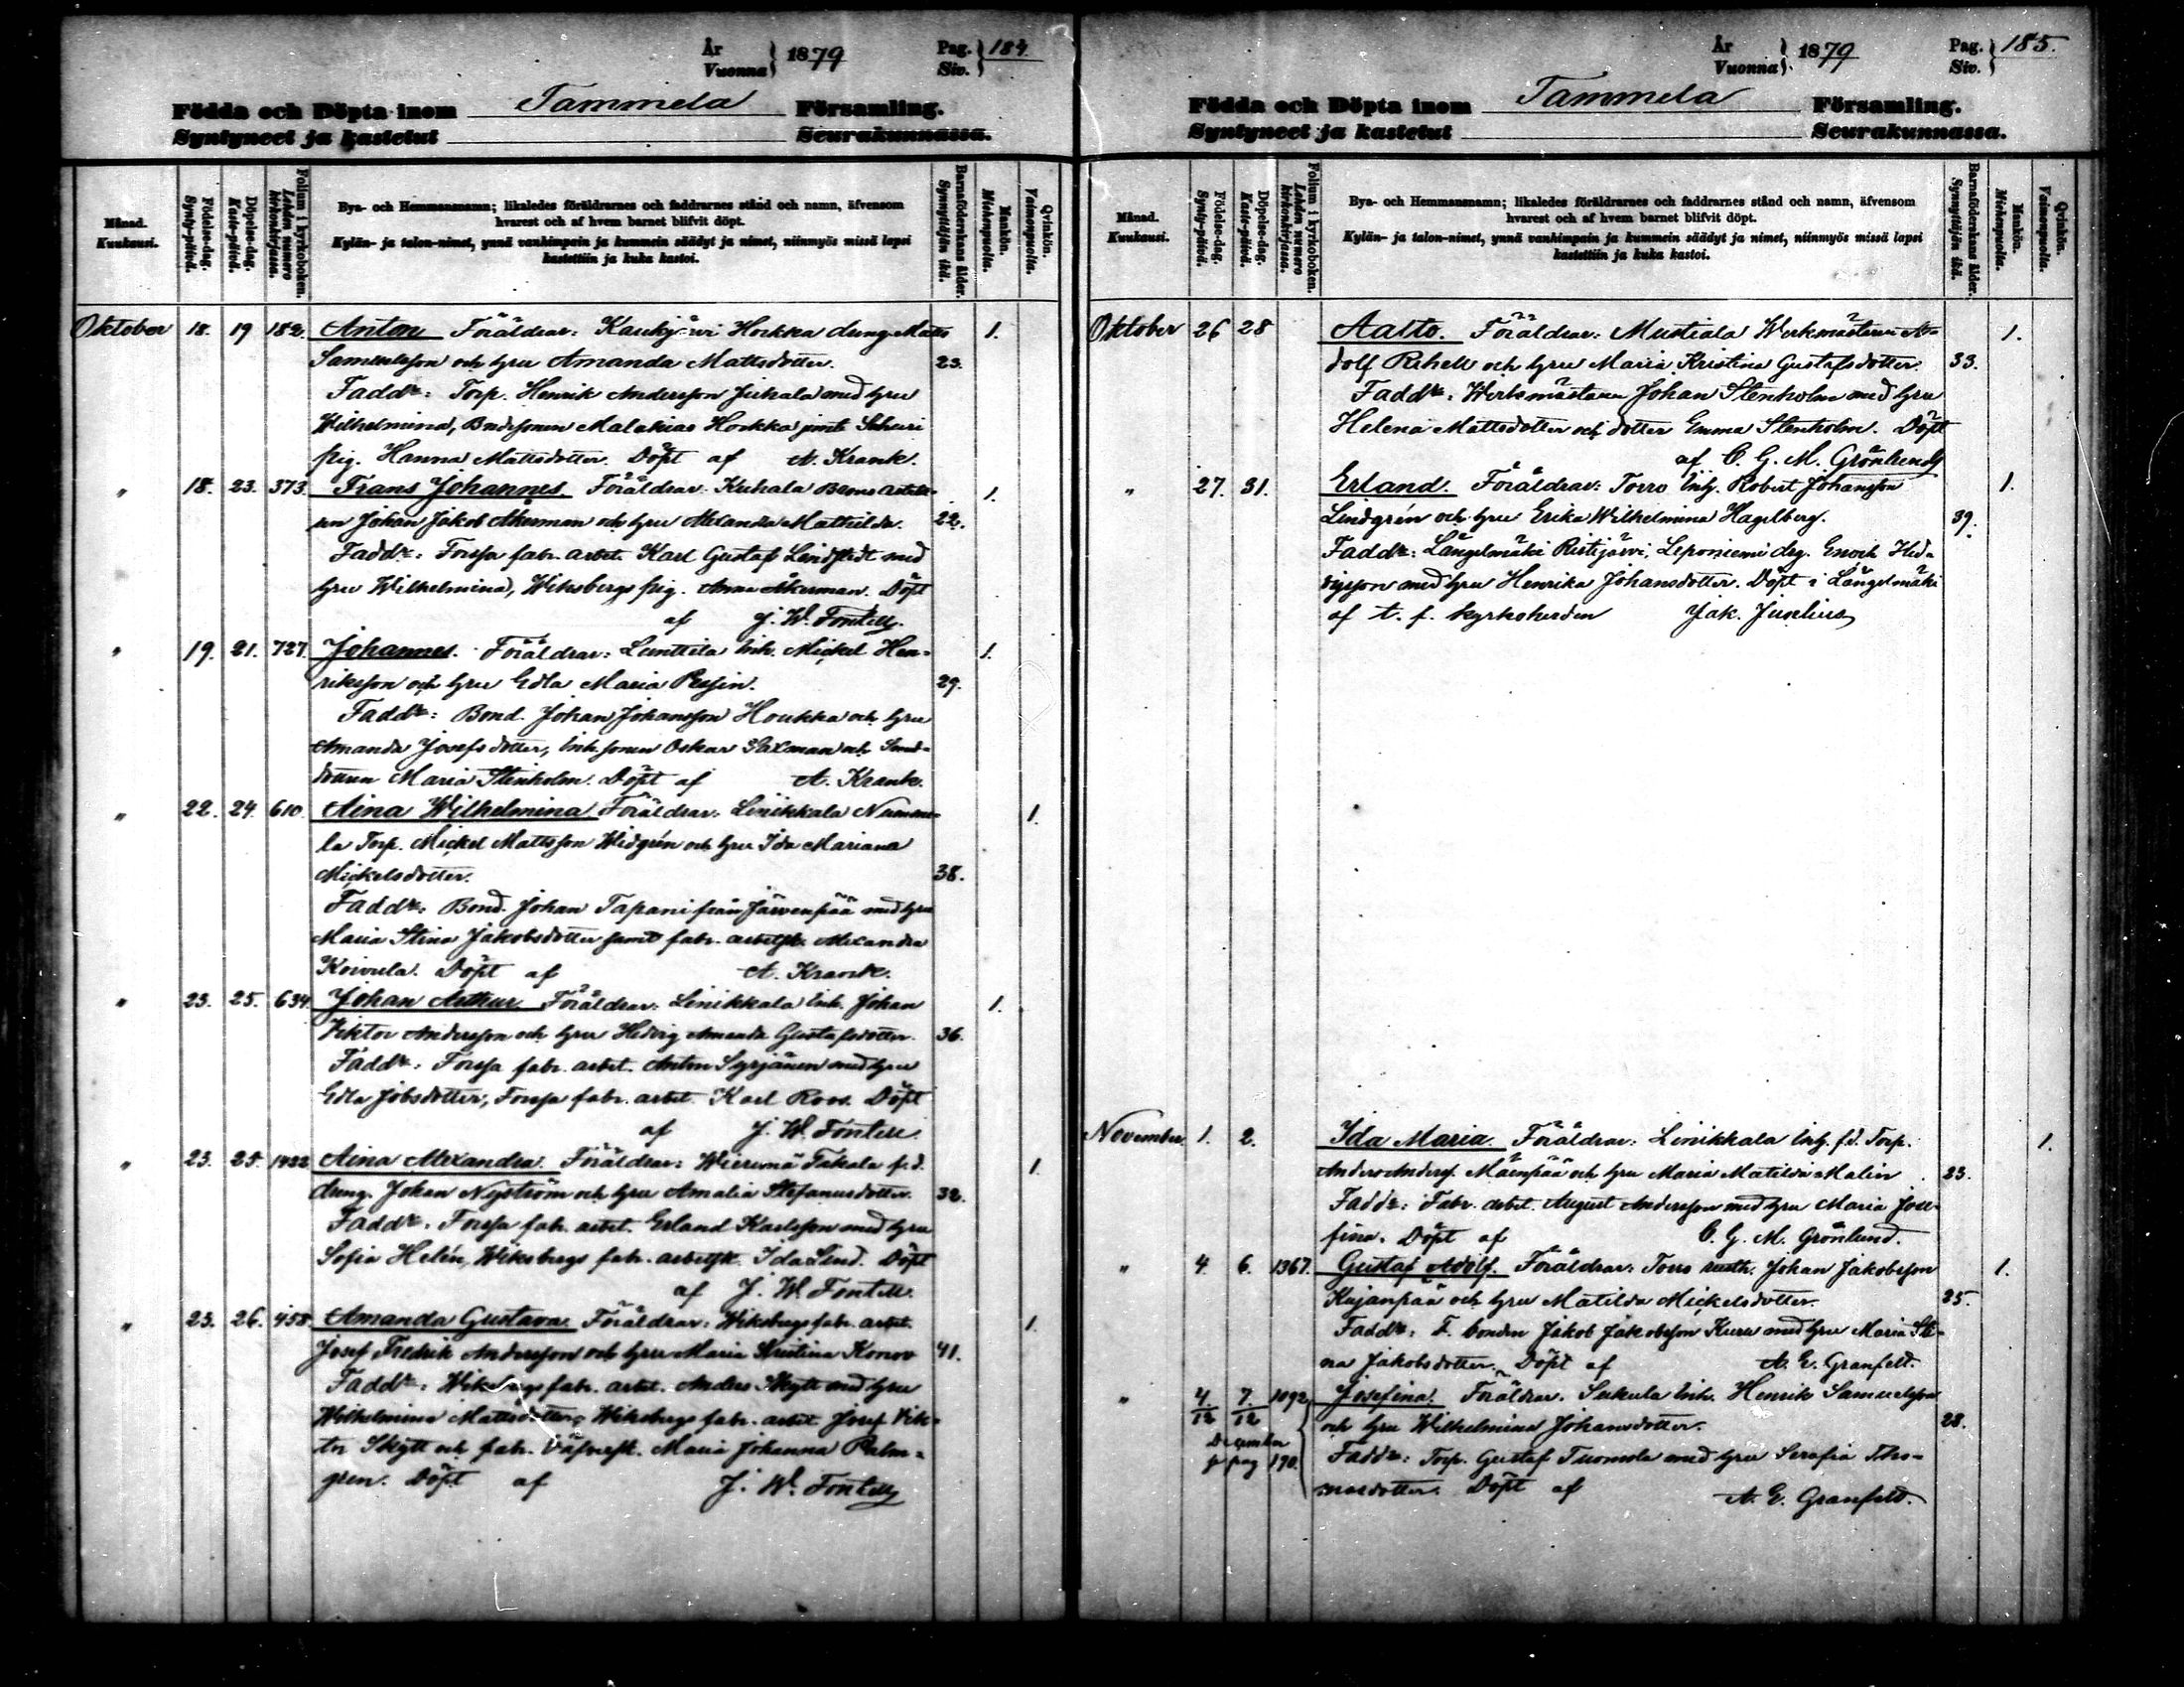 År
Vuonna } 1879
Pag.
Siv. } 184
Födda och Döpta inom Tammela Församling.
Syntyneet ja kastetut Seurakunnassa.
Månad.
Kuukausi.
Födelse-dag.
Synty-päivä.
Döpelse-dag.
Kaste-päivä.
Folium i kyrkoboken.
Lehden numero kirkonkirjassa.
Bya- och Hemmansnamn; likaledes föräldrarnes och faddrarnes stånd och namn, äfvensom
hvarest och af hvem barnet blifvit döpt.
Kylän- ja talon-nimet, ynnä vanhimpain ja kummein säädyt ja nimet, niinmyös missä lapsi
kastettiin ja kuka kastoi.
Barnaföderskans ålder.
Synnyttäjän ikä.
Mankön.
Miehenpuolta.
Qvinkön.
Vaimonpuolta.
Oktober 18. 19 182. Anton Föräldrar: Kaukjärvi Horkka dräng Matts 1.
Samuelsson och hru Amanda Mattsdotter. 23.
Faddr: Torp. Henrik Andersson Jukala med hru
Wilhelmina, Bondsonen Malakias Horkka samt
pig. Hanna Mattsdotter. Döpt af A. Krank.
" 18. 23. 373. Frans Johannes Föräldrar: Kuhala 1.
Johan Jakob Åkerman och hru Alexandra Mathilda. 22.
Faddr: Forssa fabr. arbet. Karl Gustaf Lindstedt med
hru Wilhelmina, Wiksbergs pig. Anna Åkerman. Döpt
af J. W. Fontell.
" 19. 21. 727. Johannes. Föräldrar: Lunttila Inh. Mickel Hen- 1.
riksson och hru Edla Maria 29.
Faddr: Bond. Johan Johansson Houkka och hru
Amanda Josefsdotter, Inh. sonen Oskar Saxman och
Maria Stenholm. Döpt af A. Krank.
" 22. 24. 610. Aina Wilhelmina Föräldrar: Linikkala Numme- 1.
la Torp. Mickel Mattsson Widgrén och hru Ida Mariana
Mickelsdotter. 38.
Faddr: Bond. Johan Tapani från Järvenpää med hru
Maria Stina Jakobsdotter samt fabr. arbetsk. Alexandra
Koivula. Döpt af A. Krank.
" 23. 25. 634. Johan Arthur Föräldrar: Linikkala Inh. Johan 1.
Viktor Andersson och hru Hedvig Amanda Gustafsdotter. 36.
Faddr: Forssa fabr. arbet. Anton Syrjänen med hru
Edla Jobsdotter, Forssa fabr. arbet. Karl Roos. Döpt
af J. W. Fontell.
" 23. 25. 1422 Aina Alexandra. Föräldrar: Wieremä Takala f. d. 1.
dräng. Johan Nyström och hru Amalia Stefanusdotter. 32.
Faddr: Forssa fabr. arbet. Erland Karlsson med hru
Sofia Helén, Wiksbergs fabr. arbetsk. Ida Lind. Döpt
af J. W. Fontell.
" 23. 26. 458. Amanda Gustava. Föräldrar: Wiksbergs fabr. arbet. 1.
Josef Fredrik Andersson och hru Maria Kristina Konov 41.
Faddr: Wiksbergs fabr. arbet. Anders Skytt med hru
Wilhelmina Mattsdotter, Wiksbergs fabr. arbet. Josef Vik-
tor Skytt och fabr. väfversk. Maria Johanna Palm-
gren. Döpt af J. W. Fontell
År
Vuonna } 1879
Pag.
Siv. } 185.
Födda och Döpta inom Tammela Församling.
Syntyneet ja kastetut Seurakunnassa.
Månad.
Kuukausi.
Födelse-dag.
Synty-päivä.
Döpelse-dag.
Kaste-päivä.
Folium i kyrkoboken.
Lehden numero kirkonkirjassa.
Bya- och Hemmansnamn; likaledes föräldrarnes och faddrarnes stånd och namn, äfvensom
hvarest och af hvem barnet blifvit döpt.
Kylän- ja talon-nimet, ynnä vanhimpain ja kummein säädyt ja nimet, niinmyös missä lapsi
kastettiin ja kuka kastoi.
Barnaföderskans ålder.
Synnyttäjän ikä.
Mankön.
Miehenpuolta.
Qvinkön.
Vaimonpuolta.
Oktober 26 28 Aalto. Föräldrar: Mustiala Werkmästaren A- 1.
dolf Rihell och hru Maria Kristina Gustafsdotter. 33.
Faddr: Werkmästaren Johan Stenholm med hru
Helena Mattsdotter och dotter Emma Stenholm. Döpt
af C. G. M. Grönlund
" 27. 31. Erland. Föräldrar: Torro Inhy. Robert Johansson 1.
Lindgrén och hru Erika Wilhelmina Hagelberg. 39.
Faddr: Längelmäki Ristijärvi, Leponiemi drg. Enoch Hed-
vigsson med hru Henrika Johansdotter. Döpt i Längelmäki
af t. f. kyrkoherden Jak. Juselius
November 1. 2. Ida Maria. Föräldrar: Linikkala Inhy. f.d. Torp. 1.
Anders Anderss. Mäenpää och hru Maria Matilda Malin 23.
Faddr: Fabr. arbet. August Andersson med hru Maria Jose-
fina. Döpt af C. G. M. Grönlund.
" 4. 6. 1367. Gustaf Adolf. Föräldrar: Torro Johan Jakobsson 1.
Kujanpää och hru Matilda Mickelsdotter. 25.
Faddr: F. bonden Jakob Jakobsson Kuru med hru Maria Sti-
na Jakobsdotter. Döpt af A. E. Granfelt.
" 4/12 7/12 1092 Josefina. Föräldrar: Sukula Inh. Henrik Samuelsson
och hru Wilhelmina Johansdotter. 28.
December
pag 190. Faddr: Torp. Gustaf Tuomola med hru Serafia Tho-
masdotter. Döpt af A. E. Granfelt.